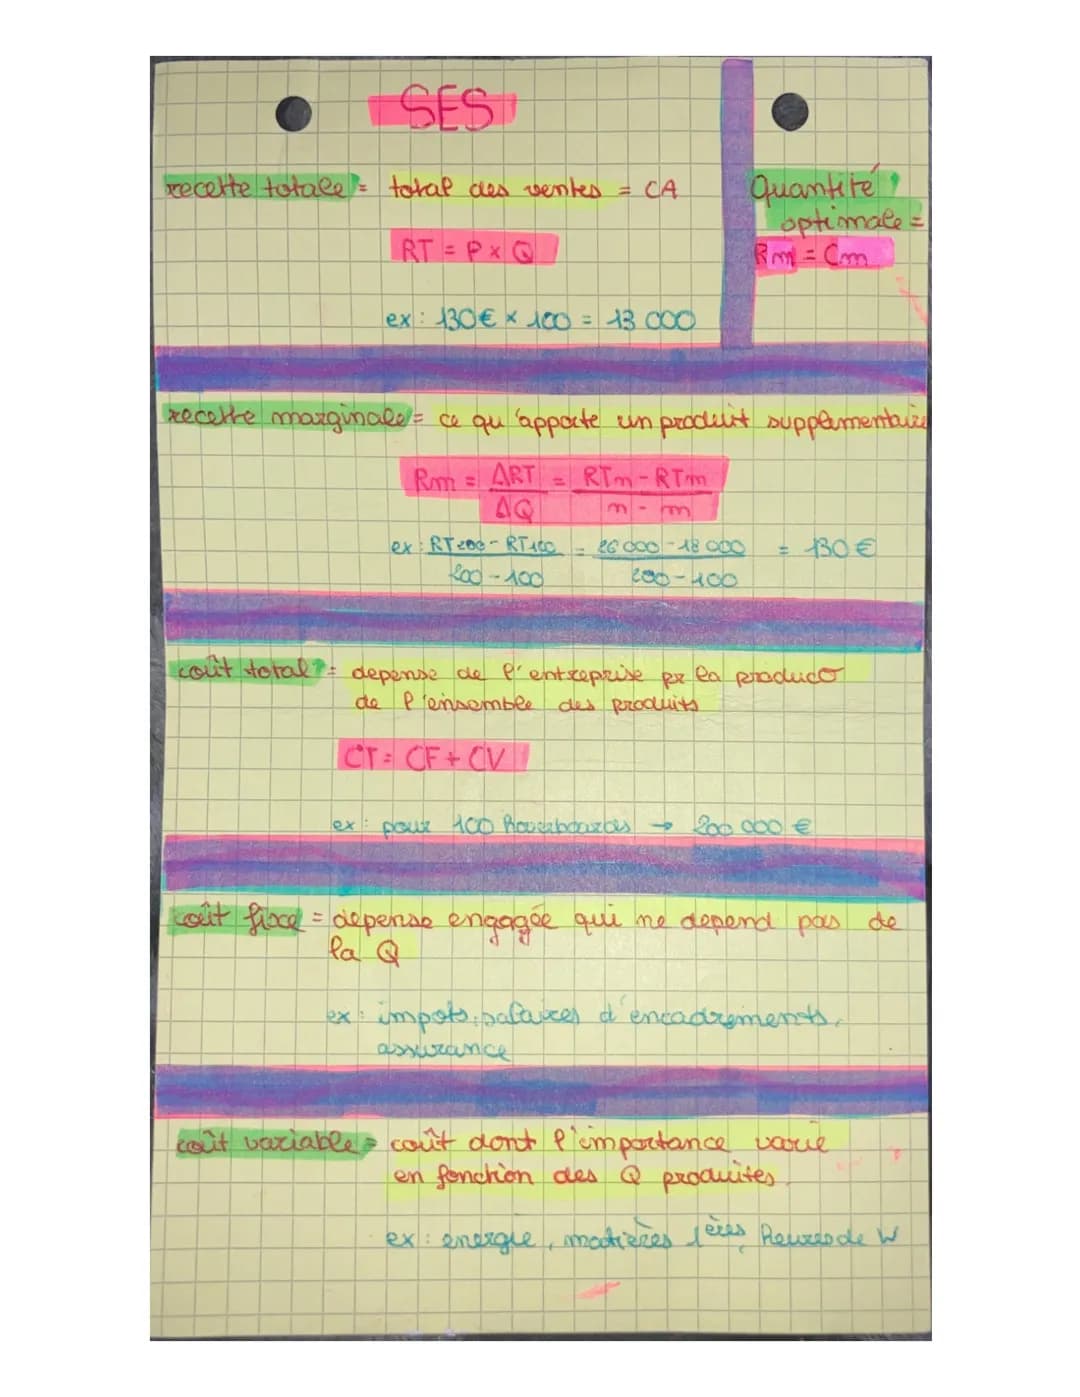 SES
recette totale = total des ventes = CA
RT = P x Q
ex : 130€ x 100 = 13 000
Quantité
optimale =
Rm = Cm
recette marginale = ce qu'apporte un produit supplémentaire
Rm = ΔRT = RTn - RTm
ΔQ n - m
ex : RT200 - RT100 = 26 000 - 13 000 = 130 €
200 - 100 200 - 100
coût total = depense de l'entreprise pr la product°
de l'ensemble des produits
CT = CF + CV
ex : pour 100 hoverboards → 200 000 €
coût fixe = depense engagée qui ne depend pas de
la Q
ex : impots, salaires d'encadrements,
assurance
coût variable = coût dont l'importance varie
en fonction des Q produites.
ex : energie, matières 1ères, heures de W